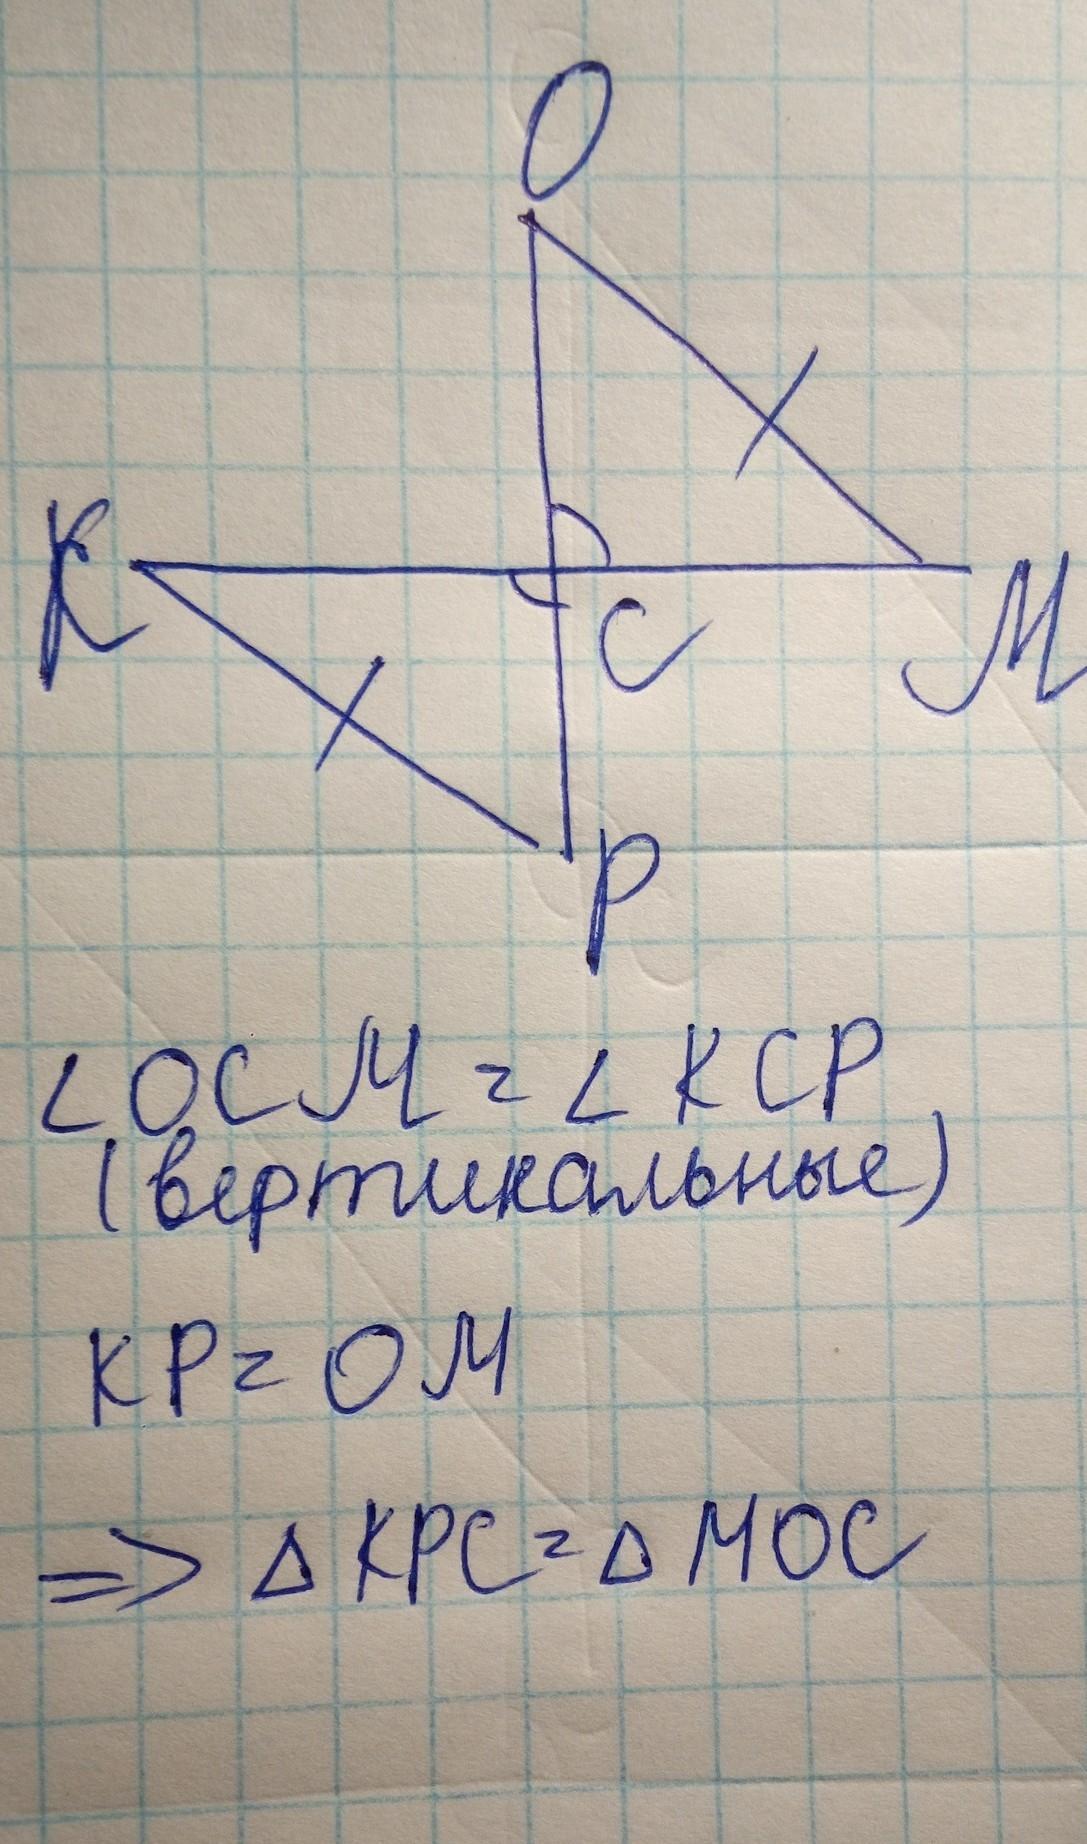 O
K
C
M
P
∠ OCM = ∠ KCP
(вертикальные)
KP = OM
=> Δ KPC = Δ MOC